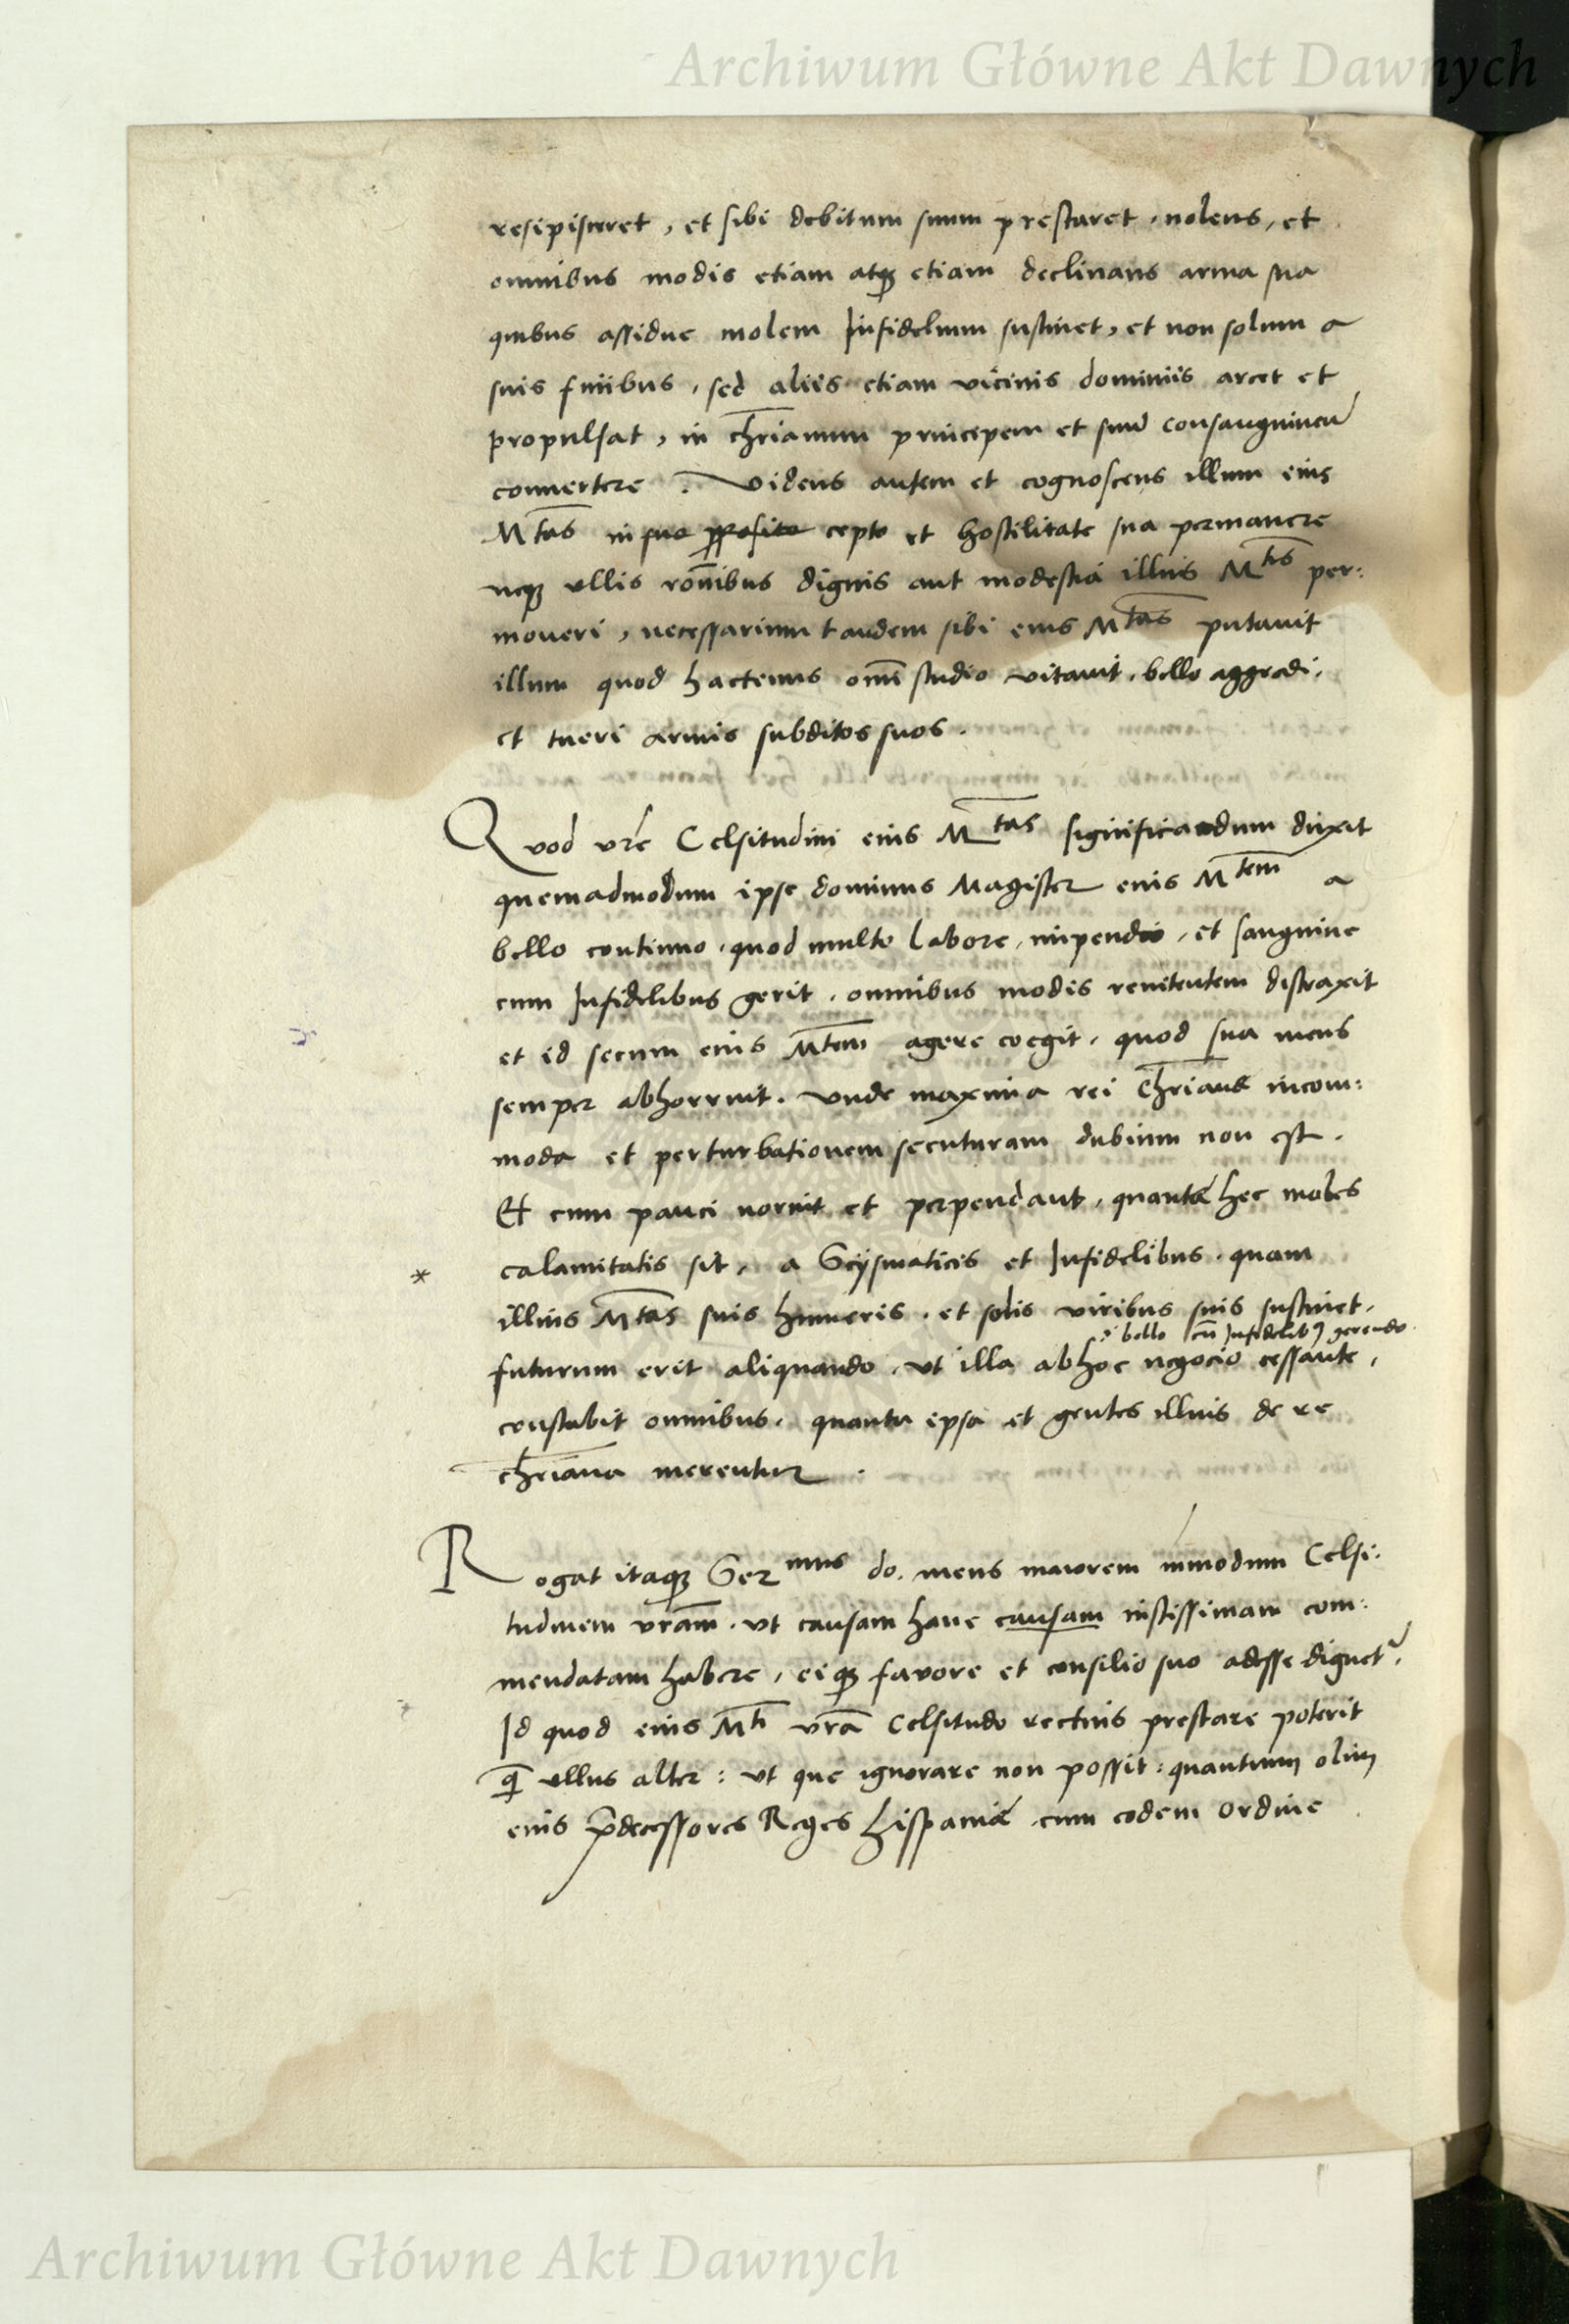 Archiwum Główne Akt Dawnych
resipisceret, et sibi debitum suum prestaret, nolens, et
omnibus modis etiam atq3 etiam declinans arma sua
quibus assidue molem Infidelium sustinet, et non solum a
suis finibus, sed aliis etiam vicinis dominiis arcet et
propulsat, in chr̄ianum principem et suū consanguineū
convertere. Videns autem et cognoscens illum eius
Mtas in suo proposito cepto et hostilitate sua permanere
neq3 ullis rōnibus dignis aut modestia illius Mtis per:
moveri, necessarium tandem sibi eius Mtas putavit
illum quod hactenus omī studio vitavit, bello aggredi,
et tueri armis subditos suos.
Quod vr̄e Celsitudini eius Mtas significandum duxit
quemadmodum ipse dominus Magister eius Mtem a
bello continuo, quod multo labore, impendio, et sanguine
cum Infidelibus gerit, omnibus modis renitentem distraxit
et id secum eius Mtem agere coegit, quod sua mens
semper abhorruit. Unde maxima rei Chr̄iane incom:
moda et perturbationem secuturam dubium non est.
Et cum pauci norint et perpendant, quanta hec moles
* calamitatis sit, a Scysmaticis et Infidelibus, quam
illius Mtas suis humeris, et solis viribus suis sustinet,
bello cū Infidelib9 gerendo
futurum erit aliquando, ut illa ab hoc negocio cessante,
constabit omnibus, quantū ipsa et gentes illius de re
chr̄iana merentur.
Rogat itaq3 Sermus do. meus maiorem inmodum Celsi:
tudinem vr̄am, ut causam hanc causam iustissimam com:
mendatam habere, eiq3 favore et consilio suo adesse dignet,
Id quod eius Mti vr̄a Celsitudo rectius prestare poterit
q̄ ullus alter: ut que ignorare non possit: quantum olim
eius p̄decessores Reges Hispaniæ cum eodem ordine
Archiwum Główne Akt Dawnych